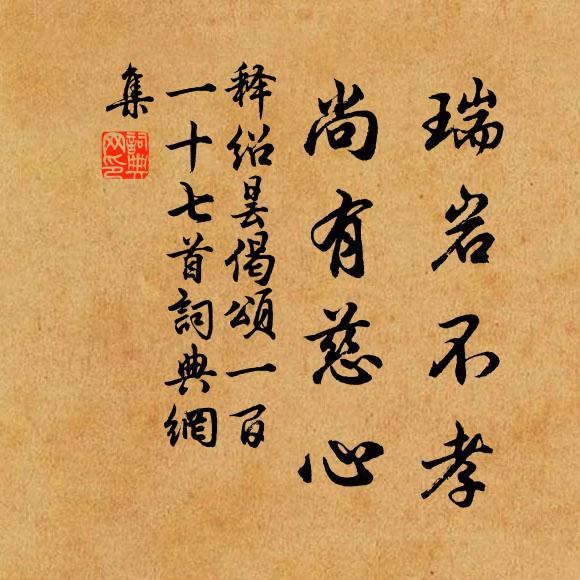 瑞岩不孝
尚有慈心
释绍昙偈颂一百
一十七首詞典網
集
詞典网印